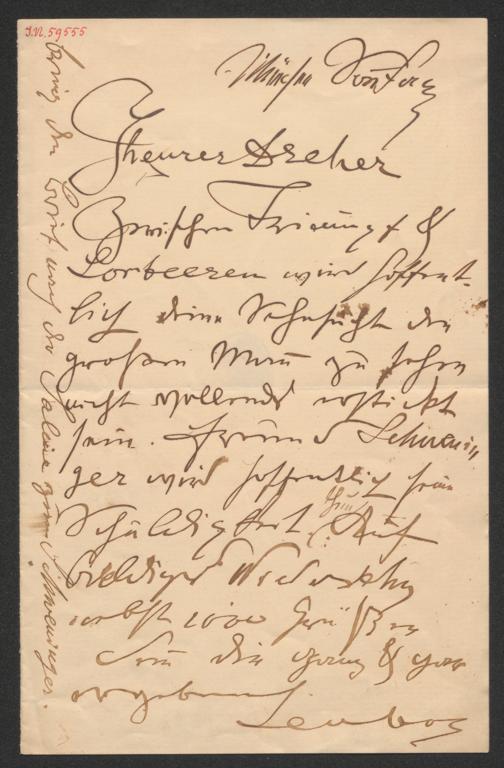 I.N. 59555
München Sonntag
Theurer Dreher
Zwischen Triumpf &
Lorbeeren wird hoffent-
lich deine Sehnsucht den
großen Mann zu sehen
nicht vollends erstickt
sein. Freund Schwenin
ger wird hoffentlich seine
Schuldigkeit thun. Auf
baldiges Wiedersehn
nebst 1000 Grüßen
Dein dir ganz & gar
ergebener
Lenbach
den Brief nach der zum Schweninger.